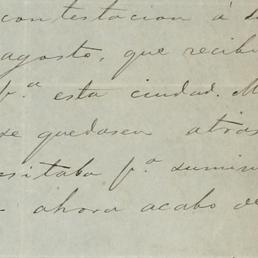 contestacion á
agosto, que recibi
p.ª esta ciudad.
se quedasen atras
sitaba p.ª sumin
ahora acabo de